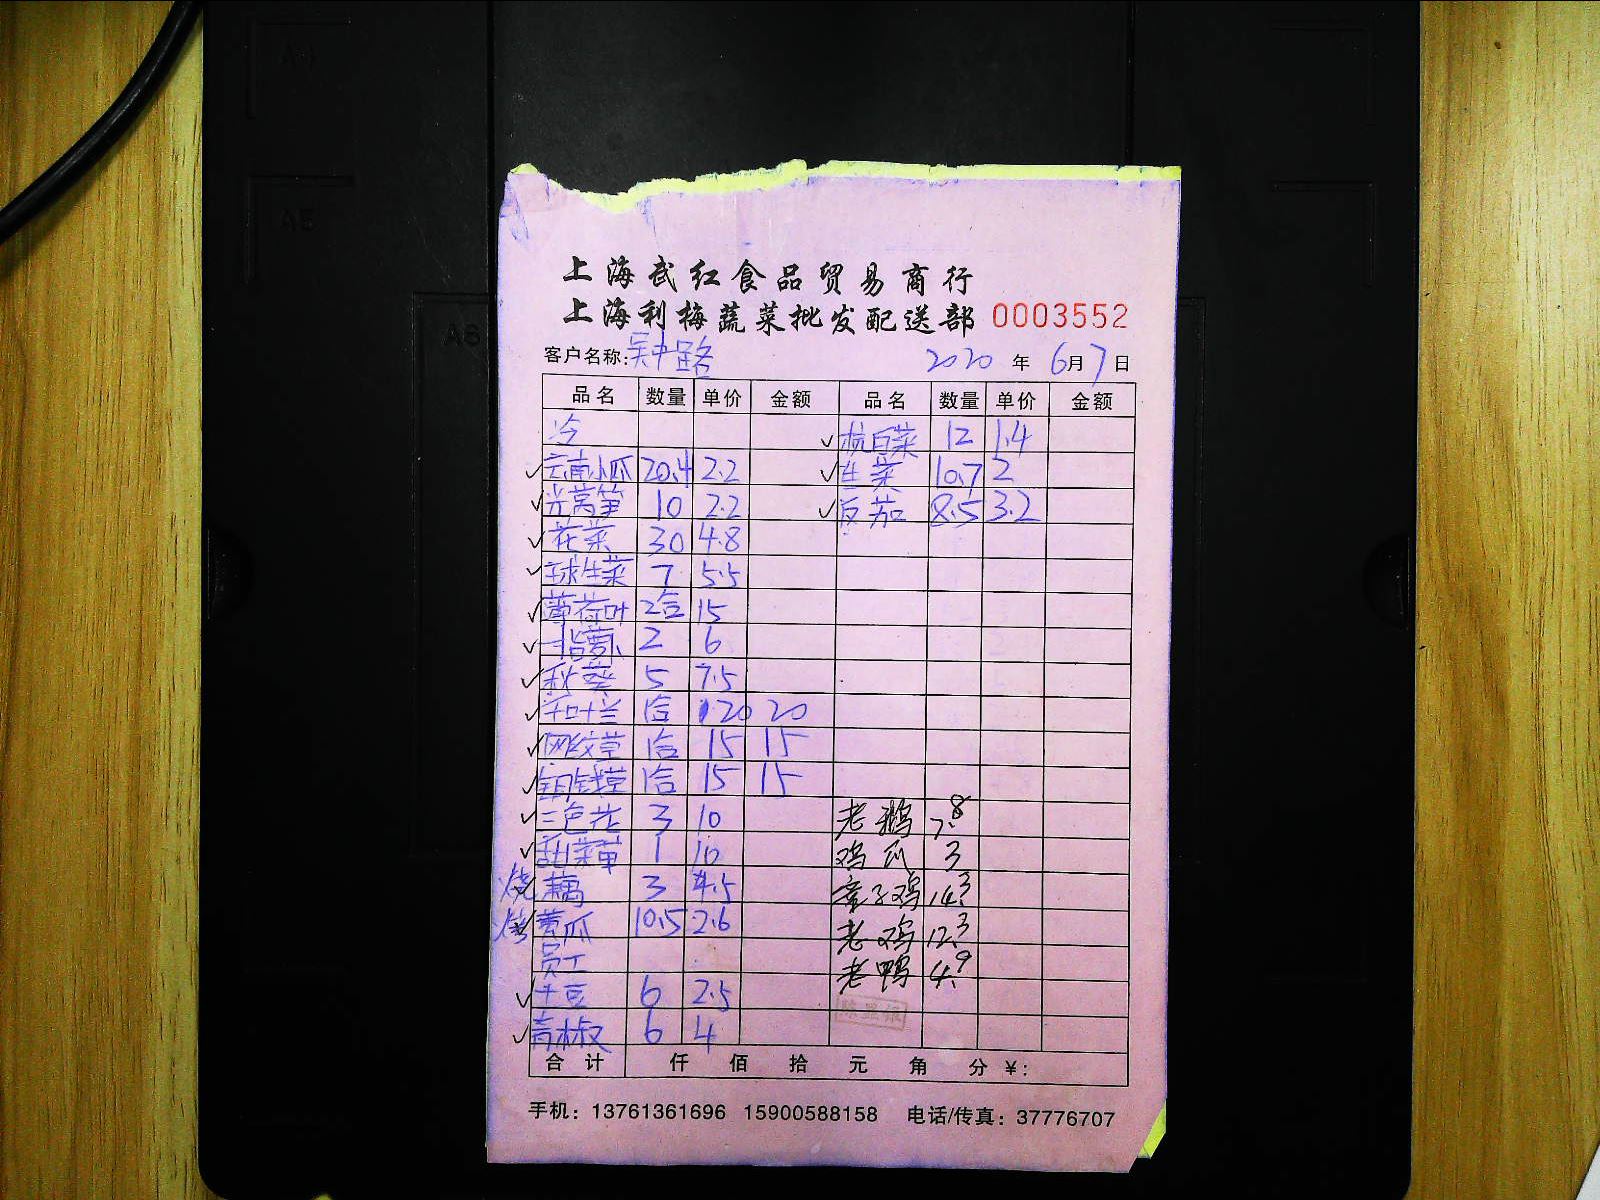 上海武红食品贸易商行
上海利梅蔬菜批发配送部 0003552
客户名称:吴中路 2020年6月7日
品名 数量 单价 金额 品名 数量 单价 金额
冷 ✓杭白菜 12 1.4
✓云南小瓜 20.4 2.2 ✓生菜 10.7 2
✓光莴笋 10 2.2 ✓反茄 8.5 3.2
✓花菜 30 4.8
✓球生菜 7 5.5
✓薄荷叶 2合 15
✓指萝卜 2 6
✓秋葵 5 7.5
✓千叶兰 1合 20 20
✓网纹草 1合 15 15
✓铜钱草 1合 15 15
✓三色花 3 10 老鹅 7.8
✓甜菜草 1 10 鸡爪 3
烧 藕 3 4.5 童子鸡 14.3
黄瓜 10.5 2.6 老鸡 12.3
员工 老鸭 4.9
✓土豆 6 2.5
✓青椒 6 4
合计 仟 佰 拾 元 角 分 ¥:
手机：13761361696 15900588158 电话/传真：37776707
A4
A5
A6